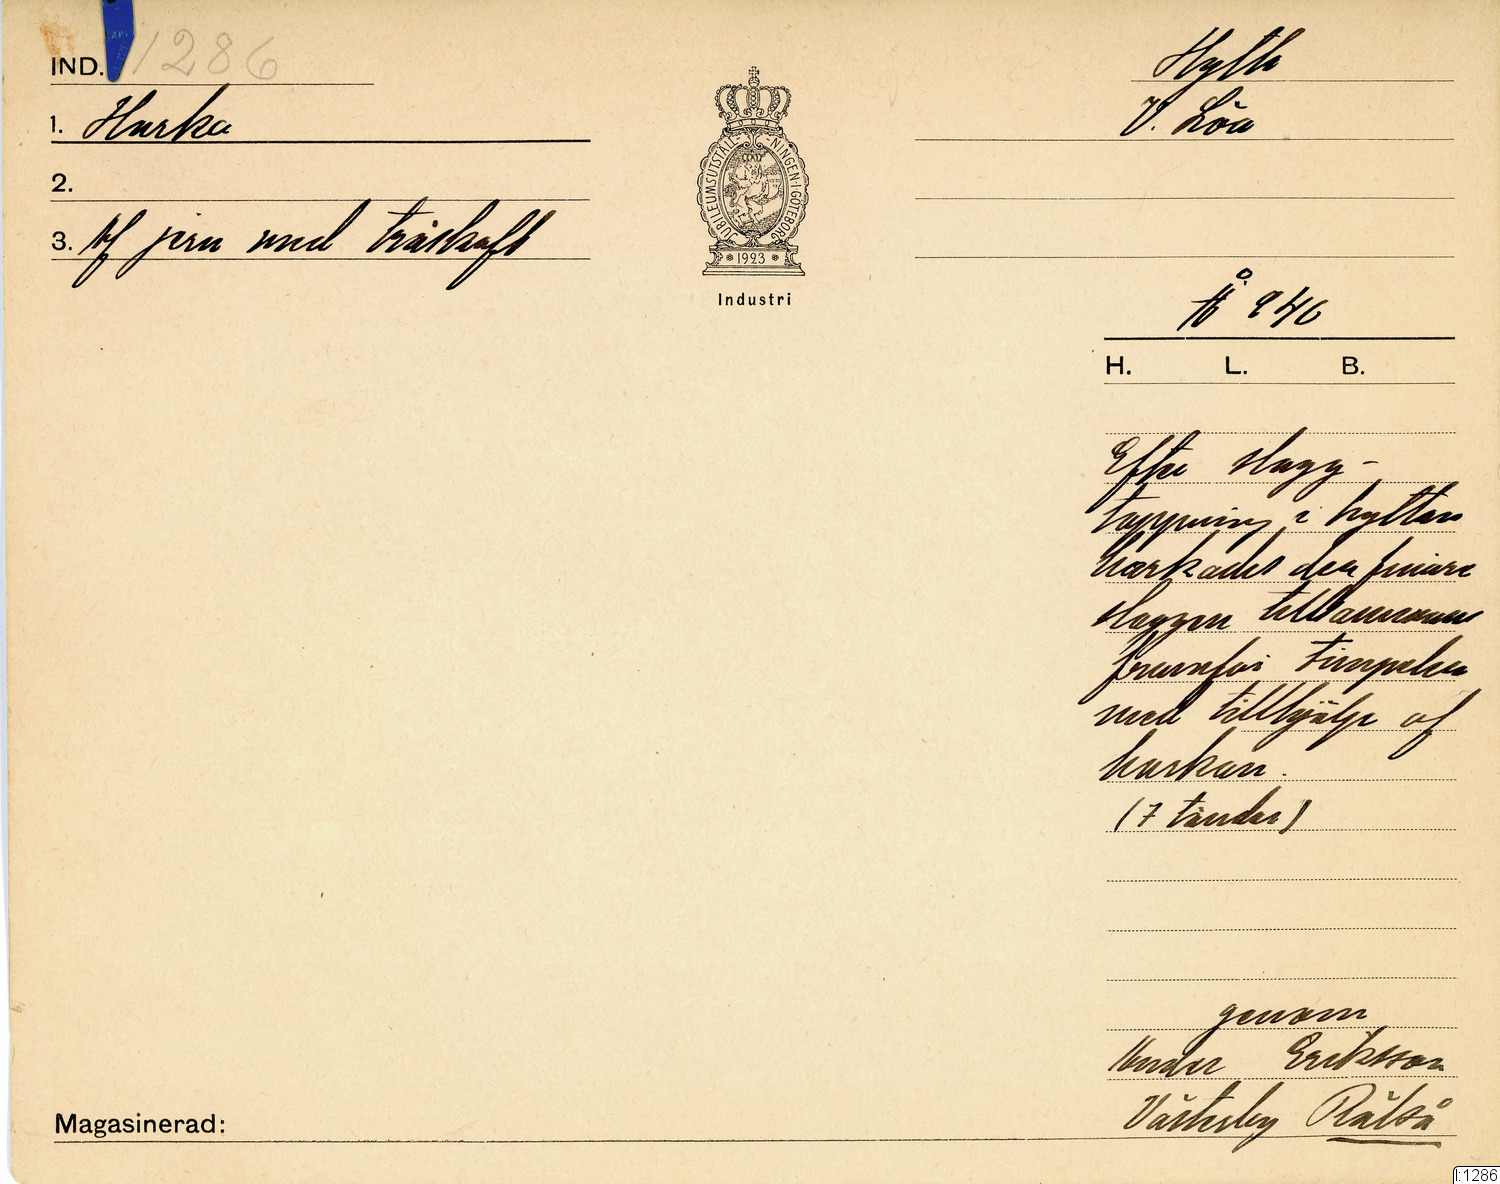 IND. 1286
1. Harka
2.
3. Af jern med träskaft
JUBILEUMSUTSTÄLLNINGEN I GÖTEBORG
1923
Industri
Hytta
V. Löa
Å 946
H. L. B.
Efter slagg-
tappning i hyttan
harkades den finare
slaggen tillsammans
framför timpelen
med tillhjälp af
harkan.
(7 tänder)
genom
Eriksson
Västerby Rälså
Magasinerad:
I:1286